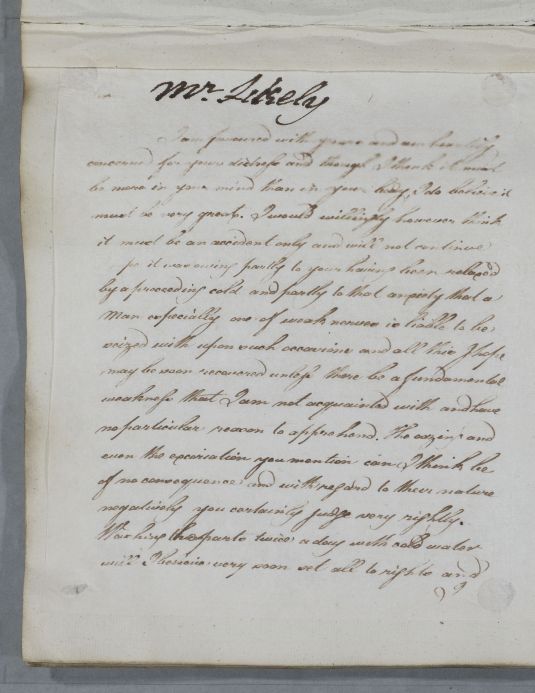 Mr. Likely
I am favoured with yours and am heartily
concerned for your distress and though I think it must
be more in your mind than in your body, I do believe it
must be very great. I would willingly however think
it must be an accident only and will not continue
it was owing partly to your having been relaxed
by a preceeding cold and partly to that anxiety that a
Man especially one of weak nerves is liable to be
seized with upon such occasions and all this I hope
may be soon recovered unless there be a fundamental
weakness that I am not acquainted with and have
no particular reason to apprehend. The oozing and
even the excoriation you mention can I think be
of no consequence and with regard to their nature
negatively you certainly judge very rightly.
Washing the parts twice a day with cold water
will I believe very soon set all to rights and